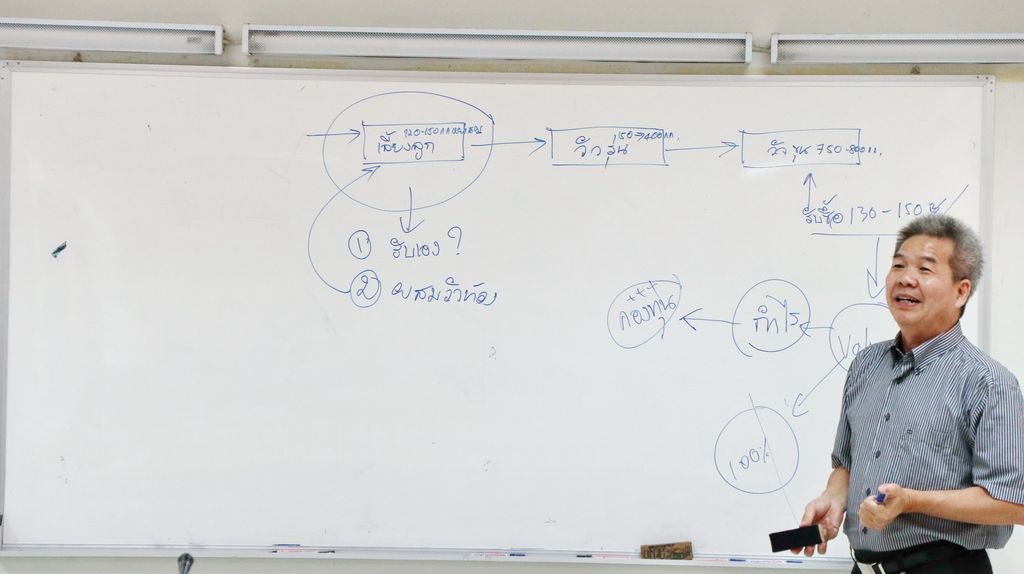 120-150 กก
เลี้ยงลูก
150→400 กก.
วัวรุ่น
วัวขุน 750-800 กก.
รับซื้อ 130-150 บ
① รับเอง ?
② ผสมวัวท้อง
+++
กองทุน
กำไร
100%